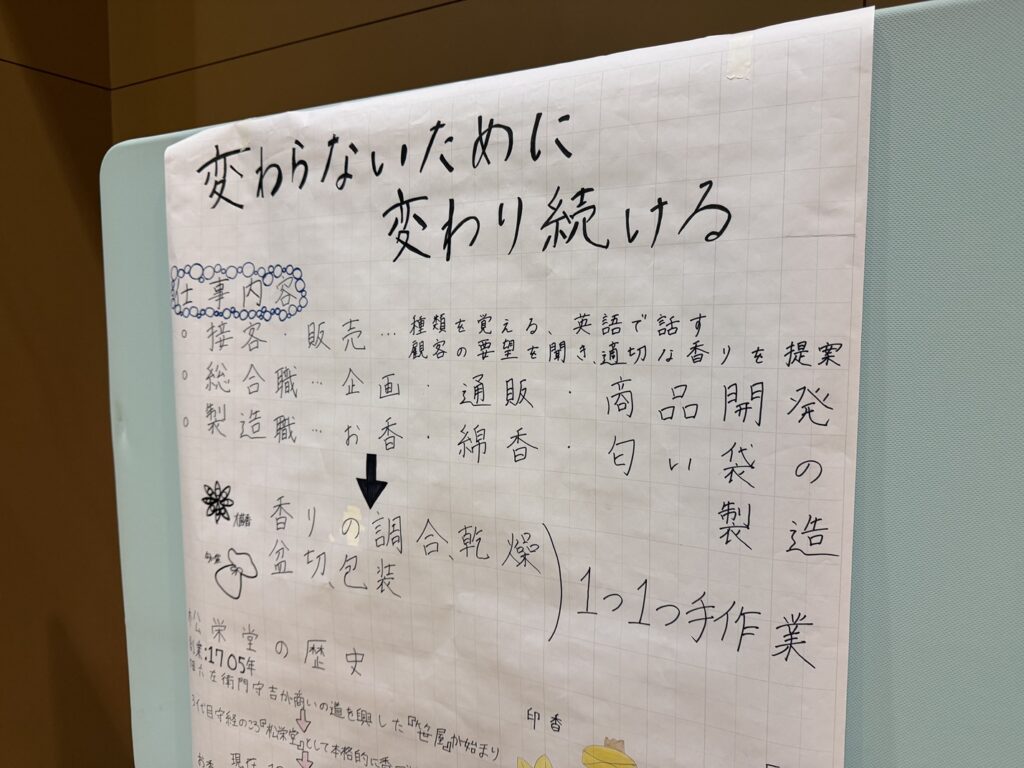 変わらないために
変わり続ける
仕事内容
○ 接客・販売…種類を覚える、英語で話す
顧客の要望を聞き、適切な香りを提案
○ 総合職…企画・通販・商品開発
○ 製造職…お香・線香・匂い袋の製造
↓
香りの調合、乾燥
盆切、包装
1つ1つ手作業
松栄堂の歴史
創業:1705年
左衛門守吉が商いの道を興した『笹屋』が始まり
3代目守経のころ『松栄堂』として本格的に香
印香
お香
現在